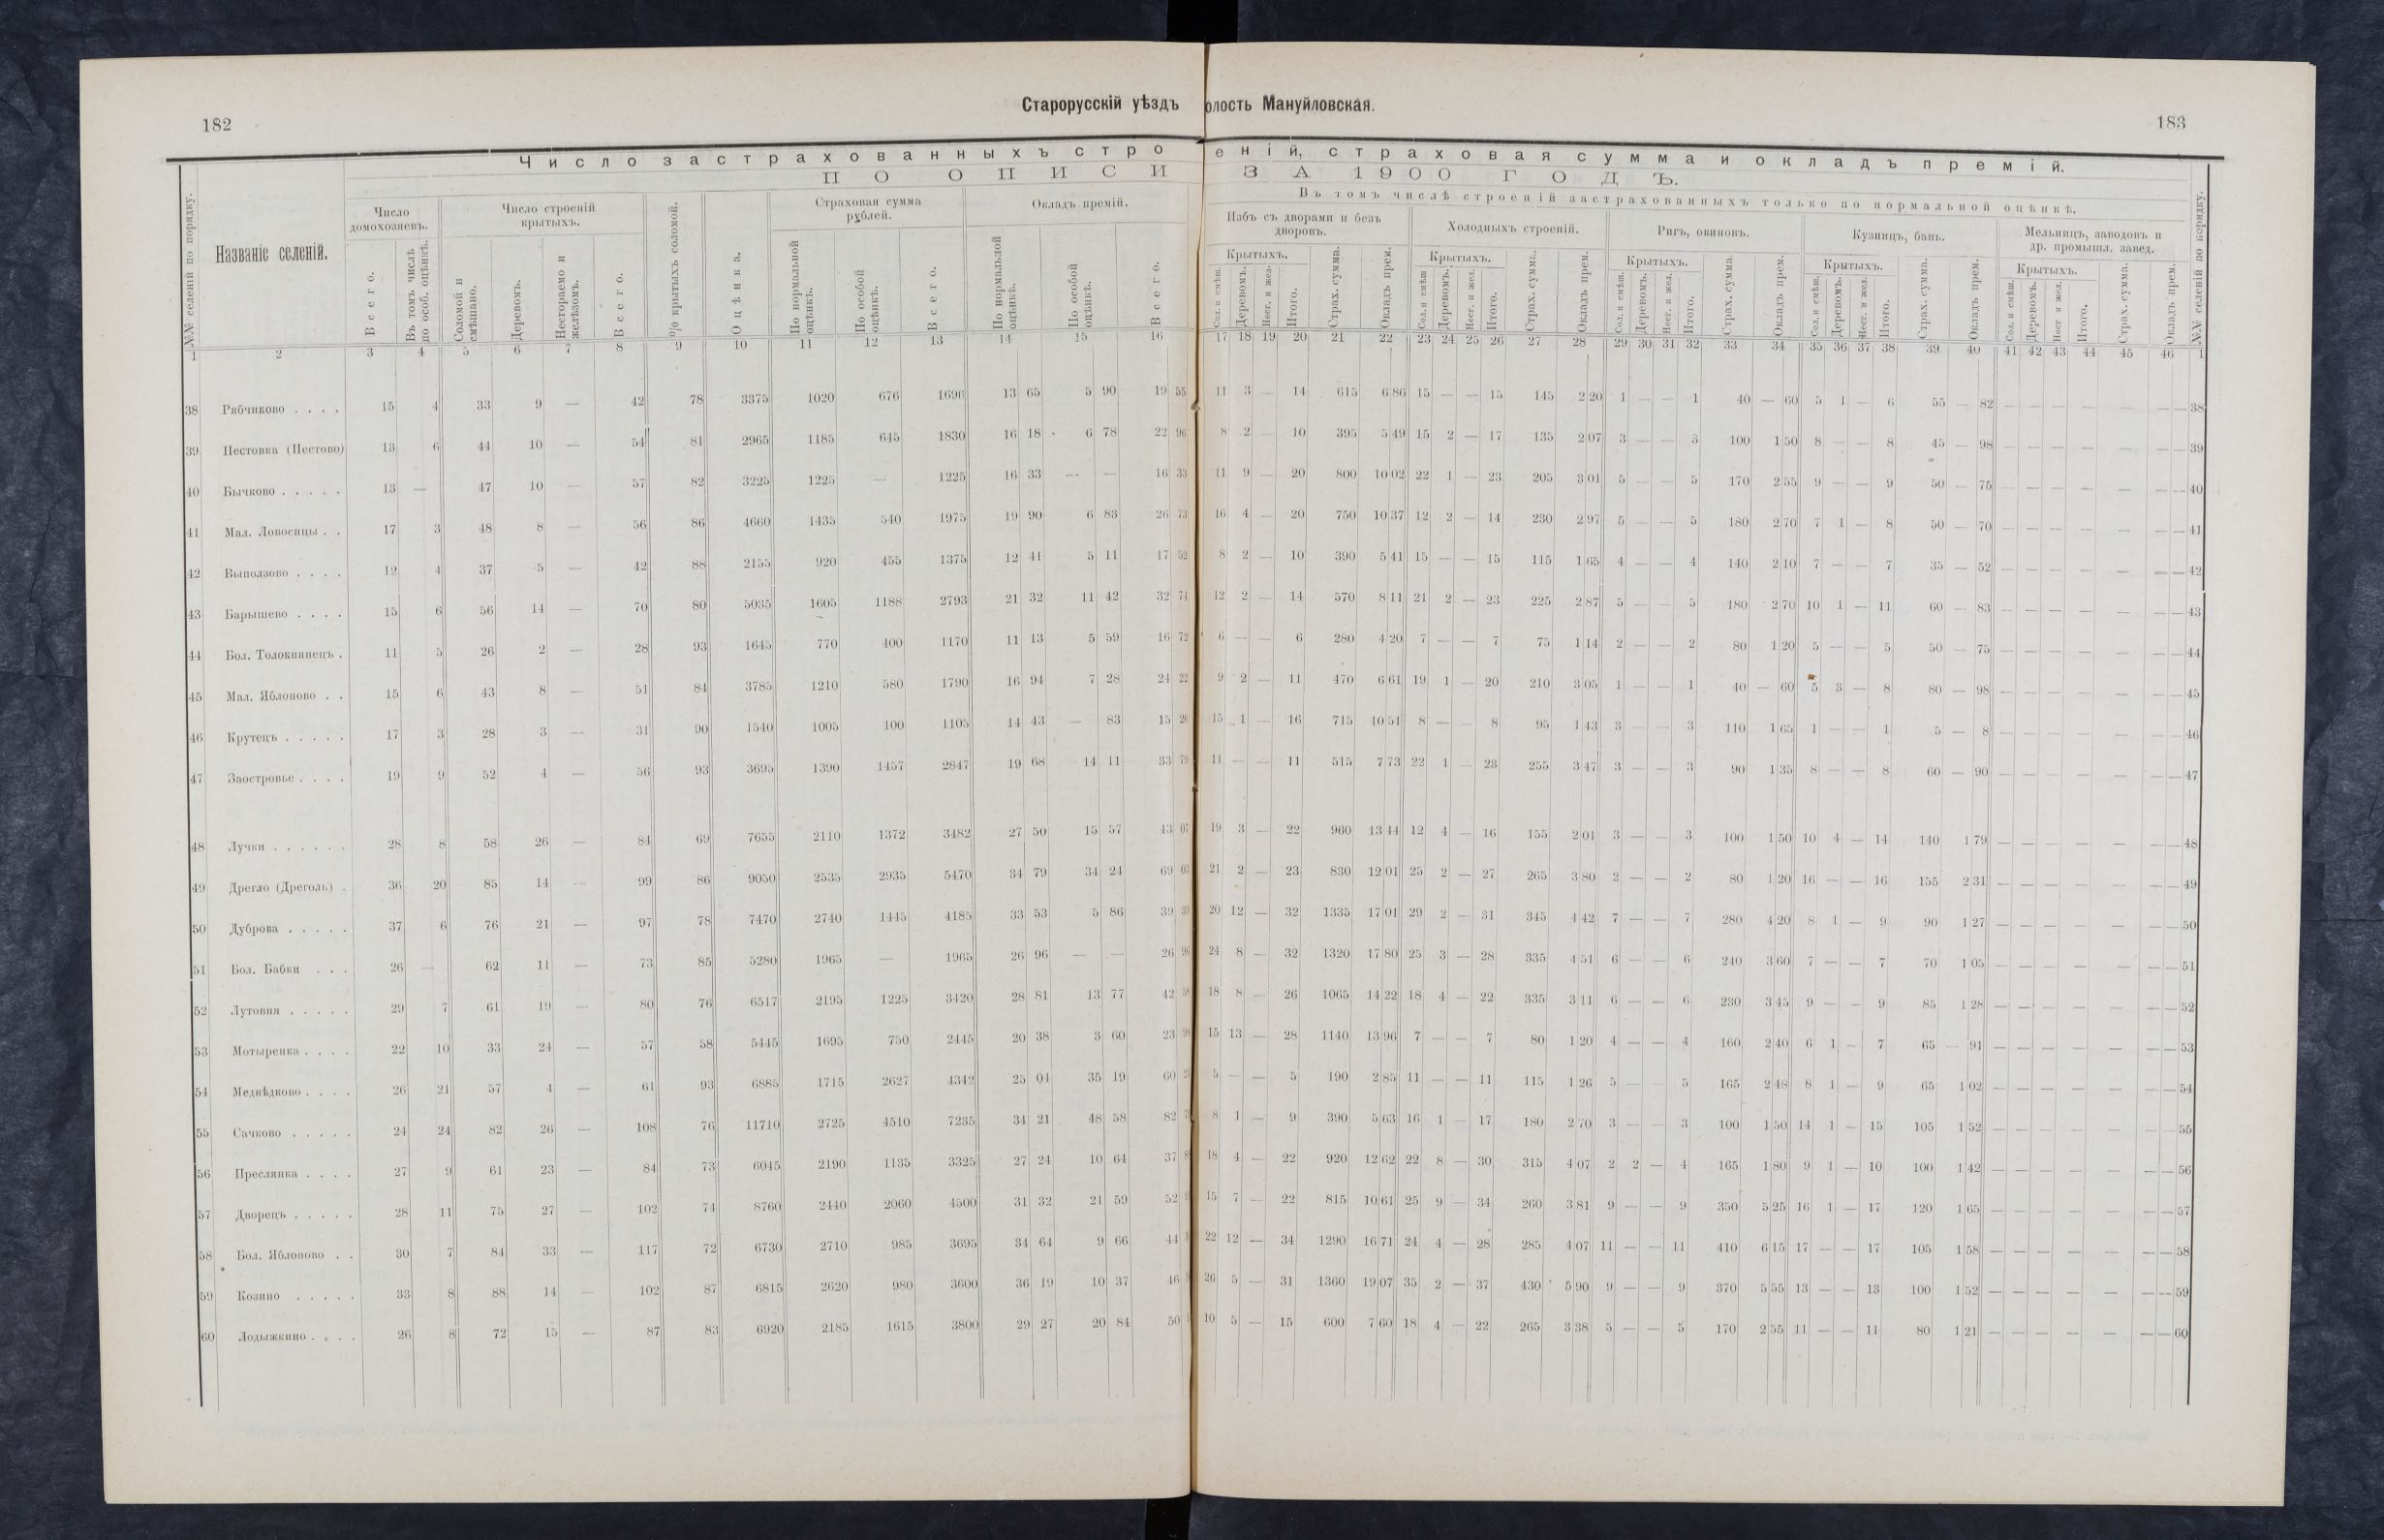 182
Старорусскій уѣздъ
олость Мануйловская.
183
Число застрахованныхъ стро
еній, страховая сумма и окладъ премій.
ПО ОПИСИ
ЗА 1900 ГОДЪ.
Въ томъ числѣ строеній застрахованныхъ только по нормальной оцѣнкѣ.
№№ селеній по порядку.
Названіе селеній.
Число домохозяевъ.
Всего.
Въ томъ числѣ по особ. оцѣнкѣ.
Число строеній крытыхъ.
Соломой и смѣшано.
Деревомъ.
Несгораемо и желѣзомъ.
Всего.
% крытыхъ соломой.
Оцѣнка.
Страховая сумма рублей.
По нормальной оцѣнкѣ.
По особой оцѣнкѣ.
Всего.
Окладъ премій.
По нормальной оцѣнкѣ.
По особой оцѣнкѣ.
Всего.
Избъ съ дворами и безъ дворовъ.
Крытыхъ.
Сол. и смѣш.
Деревомъ.
Несг. и жел.
Итого.
Страх. сумма.
Окладъ прем.
Холодныхъ строеній.
Крытыхъ.
Сол. и смѣш
Деревомъ.
Несг. и жел.
Итого.
Страх. сумма.
Окладъ прем.
Ригъ, овиновъ.
Крытыхъ.
Сол. и смѣш.
Деревомъ.
Несг. и жел.
Итого.
Страх. сумма.
Окладъ прем.
Кузницъ, бань.
Крытыхъ.
Сол. и смѣш.
Деревомъ.
Несг. и жел.
Итого.
Страх. сумма.
Окладъ прем.
Мельницъ, заводовъ и др. промышл. завед.
Крытыхъ.
Сол. и смѣш.
Деревомъ.
Несг. и жел.
Итого.
Страх. сумма.
Окладъ прем.
№№ селеній по порядку.
1 2 3 4 5 6 7 8 9 10 11 12 13 14 15 16 17 18 19 20 21 22 23 24 25 26 27 28 29 30 31 32 33 34 35 36 37 38 39 40 41 42 43 44 45 46 1
38 Рябчиково . . . . 15 4 33 9 — 42 78 3375 1020 676 1696 13 65 5 90 19 55 11 3 — 14 615 6 86 15 — — 15 145 2 20 1 — — 1 40 — 60 5 1 — 6 55 — 82 — — — — — — — 38
39 Пестовка (Пестово) 13 6 44 10 — 54 81 2965 1185 645 1830 16 18 6 78 22 96 8 2 — 10 395 5 49 15 2 — 17 135 2 07 3 — — 3 100 1 50 8 — — 8 45 — 98 — — — — — — — 39
40 Бычково . . . . . 13 — 47 10 — 57 82 3225 1225 — 1225 16 33 — — 16 33 11 9 — 20 800 10 02 22 1 — 23 205 3 01 5 — — 5 170 2 55 9 — — 9 50 — 75 — — — — — — — 40
41 Мал. Ловосицы . . 17 3 48 8 — 56 86 4660 1435 540 1975 19 90 6 83 26 73 16 4 — 20 750 10 37 12 2 — 14 230 2 97 5 — — 5 180 2 70 7 1 — 8 50 — 70 — — — — — — — 41
42 Выползово . . . . 12 4 37 5 — 42 88 2155 920 455 1375 12 41 5 11 17 52 8 2 — 10 390 5 41 15 — — 15 115 1 65 4 — — 4 140 2 10 7 — — 7 35 — 52 — — — — — — — 42
43 Барышево . . . . 15 6 56 14 — 70 80 5035 1605 1188 2793 21 32 11 42 32 74 12 2 — 14 570 8 11 21 2 — 23 225 2 87 5 — — 5 180 2 70 10 1 — 11 60 — 83 — — — — — — — 43
44 Бол. Толокнянецъ . 11 5 26 2 — 28 93 1645 770 400 1170 11 13 5 59 16 72 6 — — 6 280 4 20 7 — — 7 75 1 14 2 — — 2 80 1 20 5 — — 5 50 — 75 — — — — — — — 44
45 Мал. Яблоново . . 15 6 43 8 — 51 84 3785 1210 580 1790 16 94 7 28 24 22 9 2 — 11 470 6 61 19 1 — 20 210 3 05 1 — — 1 40 — 60 5 3 — 8 80 — 98 — — — — — — — 45
46 Крутецъ . . . . . 17 3 28 3 — 31 90 1540 1005 100 1105 14 43 — 83 15 26 15 1 — 16 715 10 51 8 — — 8 95 1 43 3 — — 3 110 1 65 1 — — 1 5 — 8 — — — — — — — 46
47 Заостровье . . . . 19 9 52 4 — 56 93 3695 1390 1457 2847 19 68 14 11 33 79 11 — — 11 515 7 73 22 1 — 23 255 3 47 3 — — 3 90 1 35 8 — — 8 60 — 90 — — — — — — — 47
48 Лучки . . . . . . 28 8 58 26 — 84 69 7655 2110 1372 3482 27 50 15 57 43 07 19 3 — 22 960 13 44 12 4 — 16 155 2 01 3 — — 3 100 1 50 10 4 — 14 140 1 79 — — — — — — — 48
49 Дрегло (Дреголь) . 36 20 85 14 — 99 86 9050 2535 2935 5470 34 79 34 24 69 03 21 2 — 23 830 12 01 25 2 — 27 265 3 80 2 — — 2 80 1 20 16 — — 16 155 2 31 — — — — — — — 49
50 Дуброва . . . . . 37 6 76 21 — 97 78 7470 2740 1445 4185 33 53 5 86 39 39 20 12 — 32 1335 17 01 29 2 — 31 345 4 42 7 — — 7 280 4 20 8 1 — 9 90 1 27 — — — — — — — 50
51 Бол. Бабки . . . 26 — 62 11 — 73 85 5280 1965 — 1965 26 96 — — 26 96 24 8 — 32 1320 17 80 25 3 — 28 335 4 51 6 — — 6 240 3 60 7 — — 7 70 1 05 — — — — — — — 51
52 Лутовня . . . . . 29 7 61 19 — 80 76 6517 2195 1225 3420 28 81 13 77 42 58 18 8 — 26 1065 14 22 18 4 — 22 335 3 11 6 — — 6 230 3 45 9 — — 9 85 1 28 — — — — — — — 52
53 Мотыренка . . . . 22 10 33 24 — 57 58 5445 1695 750 2445 20 38 3 60 23 98 15 13 — 28 1140 13 96 7 — — 7 80 1 20 4 — — 4 160 2 40 6 1 — 7 65 — 91 — — — — — — — 53
54 Медвѣдково . . . . 26 21 57 4 — 61 93 6885 1715 2627 4342 25 04 35 19 60 5 — — 5 190 2 85 11 — — 11 115 1 26 5 — — 5 165 2 48 8 1 — 9 65 1 02 — — — — — — — 54
55 Сачково . . . . . 24 24 82 26 — 108 76 11710 2725 4510 7235 34 21 48 58 82 8 1 — 9 390 5 63 16 1 — 17 180 2 70 3 — — 3 100 1 50 14 1 — 15 105 1 52 — — — — — — — 55
56 Преслянка . . . . 27 9 61 23 — 84 73 6045 2190 1135 3325 27 24 10 64 37 18 4 — 22 920 12 62 22 8 — 30 315 4 07 2 2 — 4 165 1 80 9 1 — 10 100 1 42 — — — — — — — 56
57 Дворецъ . . . . . 28 11 75 27 — 102 74 8760 2440 2060 4500 31 32 21 59 52 15 7 — 22 815 10 61 25 9 — 34 260 3 81 9 — — 9 350 5 25 16 1 — 17 120 1 65 — — — — — — — 57
58 Бол. Яблоново . . 30 7 84 33 — 117 72 6730 2710 985 3695 34 64 9 66 44 22 12 — 34 1290 16 71 24 4 — 28 285 4 07 11 — — 11 410 6 15 17 — — 17 105 1 58 — — — — — — — 58
59 Козино . . . . . 33 8 88 14 — 102 87 6815 2620 980 3600 36 19 10 37 46 26 5 — 31 1360 19 07 35 2 — 37 430 5 90 9 — — 9 370 5 55 13 — — 13 100 1 52 — — — — — — — 59
60 Лодыжкино . . . . 26 8 72 15 — 87 83 6920 2185 1615 3800 29 27 20 84 50 10 5 — 15 600 7 60 18 4 — 22 265 3 38 5 — — 5 170 2 55 11 — — 11 80 1 21 — — — — — — — 60